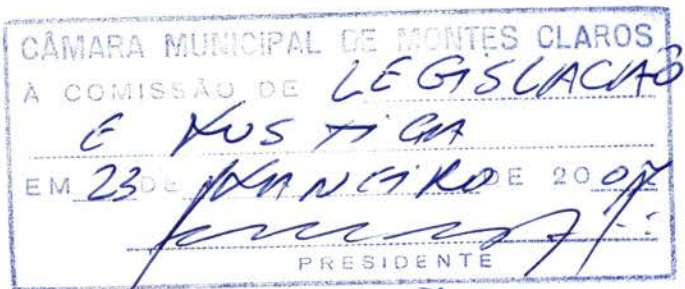 CÂMARA MUNICIPAL DE MONTES CLAROS
À COMISSÃO DE LEGISLACAO
E JUSTIÇA
EM 23 DE JANEIRO DE 2007
PRESIDENTE